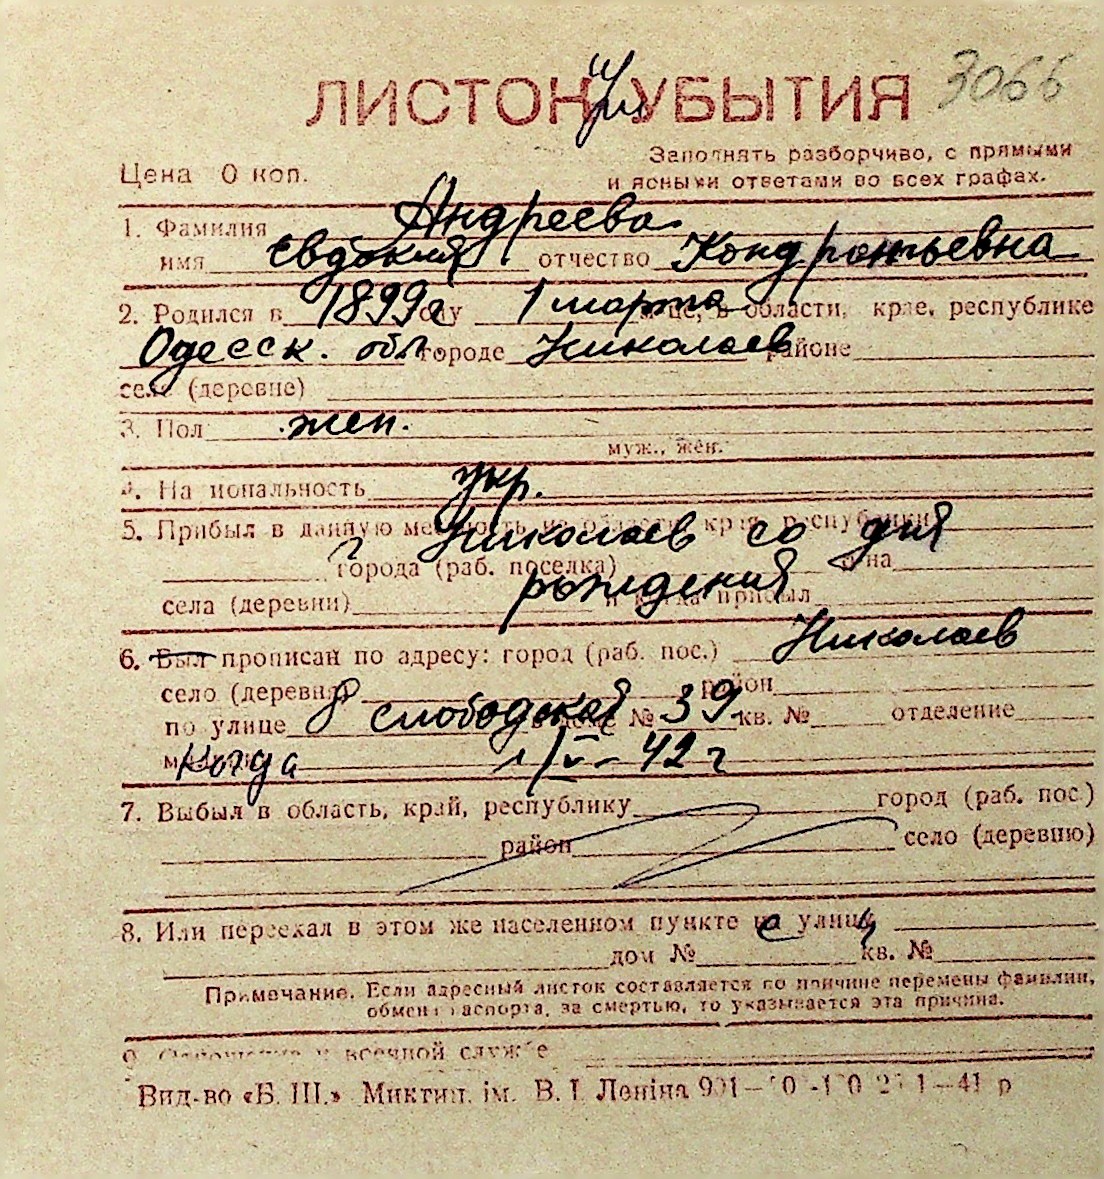 ЛИСТОК УБЫТИЯ 3066
Цена 0 коп.
Заполнять разборчиво, с прямыми
и ясными ответами во всех графах.
1. Фамилия Андреева
имя Евдокия отчество Кондратьевна
2. Родился в 1899 г году 1 марта м-це, в области, крае, республике
Одесск. обл. городе Николаев районе
село (деревне)
3. Пол жен.
муж., жен.
4. Национальность укр.
5. Прибыл в данную местность из области, края, республики
г Николаев со дня
города (раб. поселка) она
рождения
села (деревни) и когда прибыл
6. Был прописан по адресу: город (раб. пос.) Николаев
село (деревня) район
по улице 8 слободская в доме № 39 кв. № отделение
Когда 1/V-42 г
7. Выбыл в область, край, республику город (раб. пос.)
район село (деревню)
8. Или переехал в этом же населенном пункте с улиц
дом № кв. №
Примечание. Если адресный листок составляется по причине перемены фамилии,
обмена паспорта, за смертью, то указывается эта причина.
9. Отношение к военной службе
Вид-во «Б. Ш.» Миктип. ім. В. І. Леніна